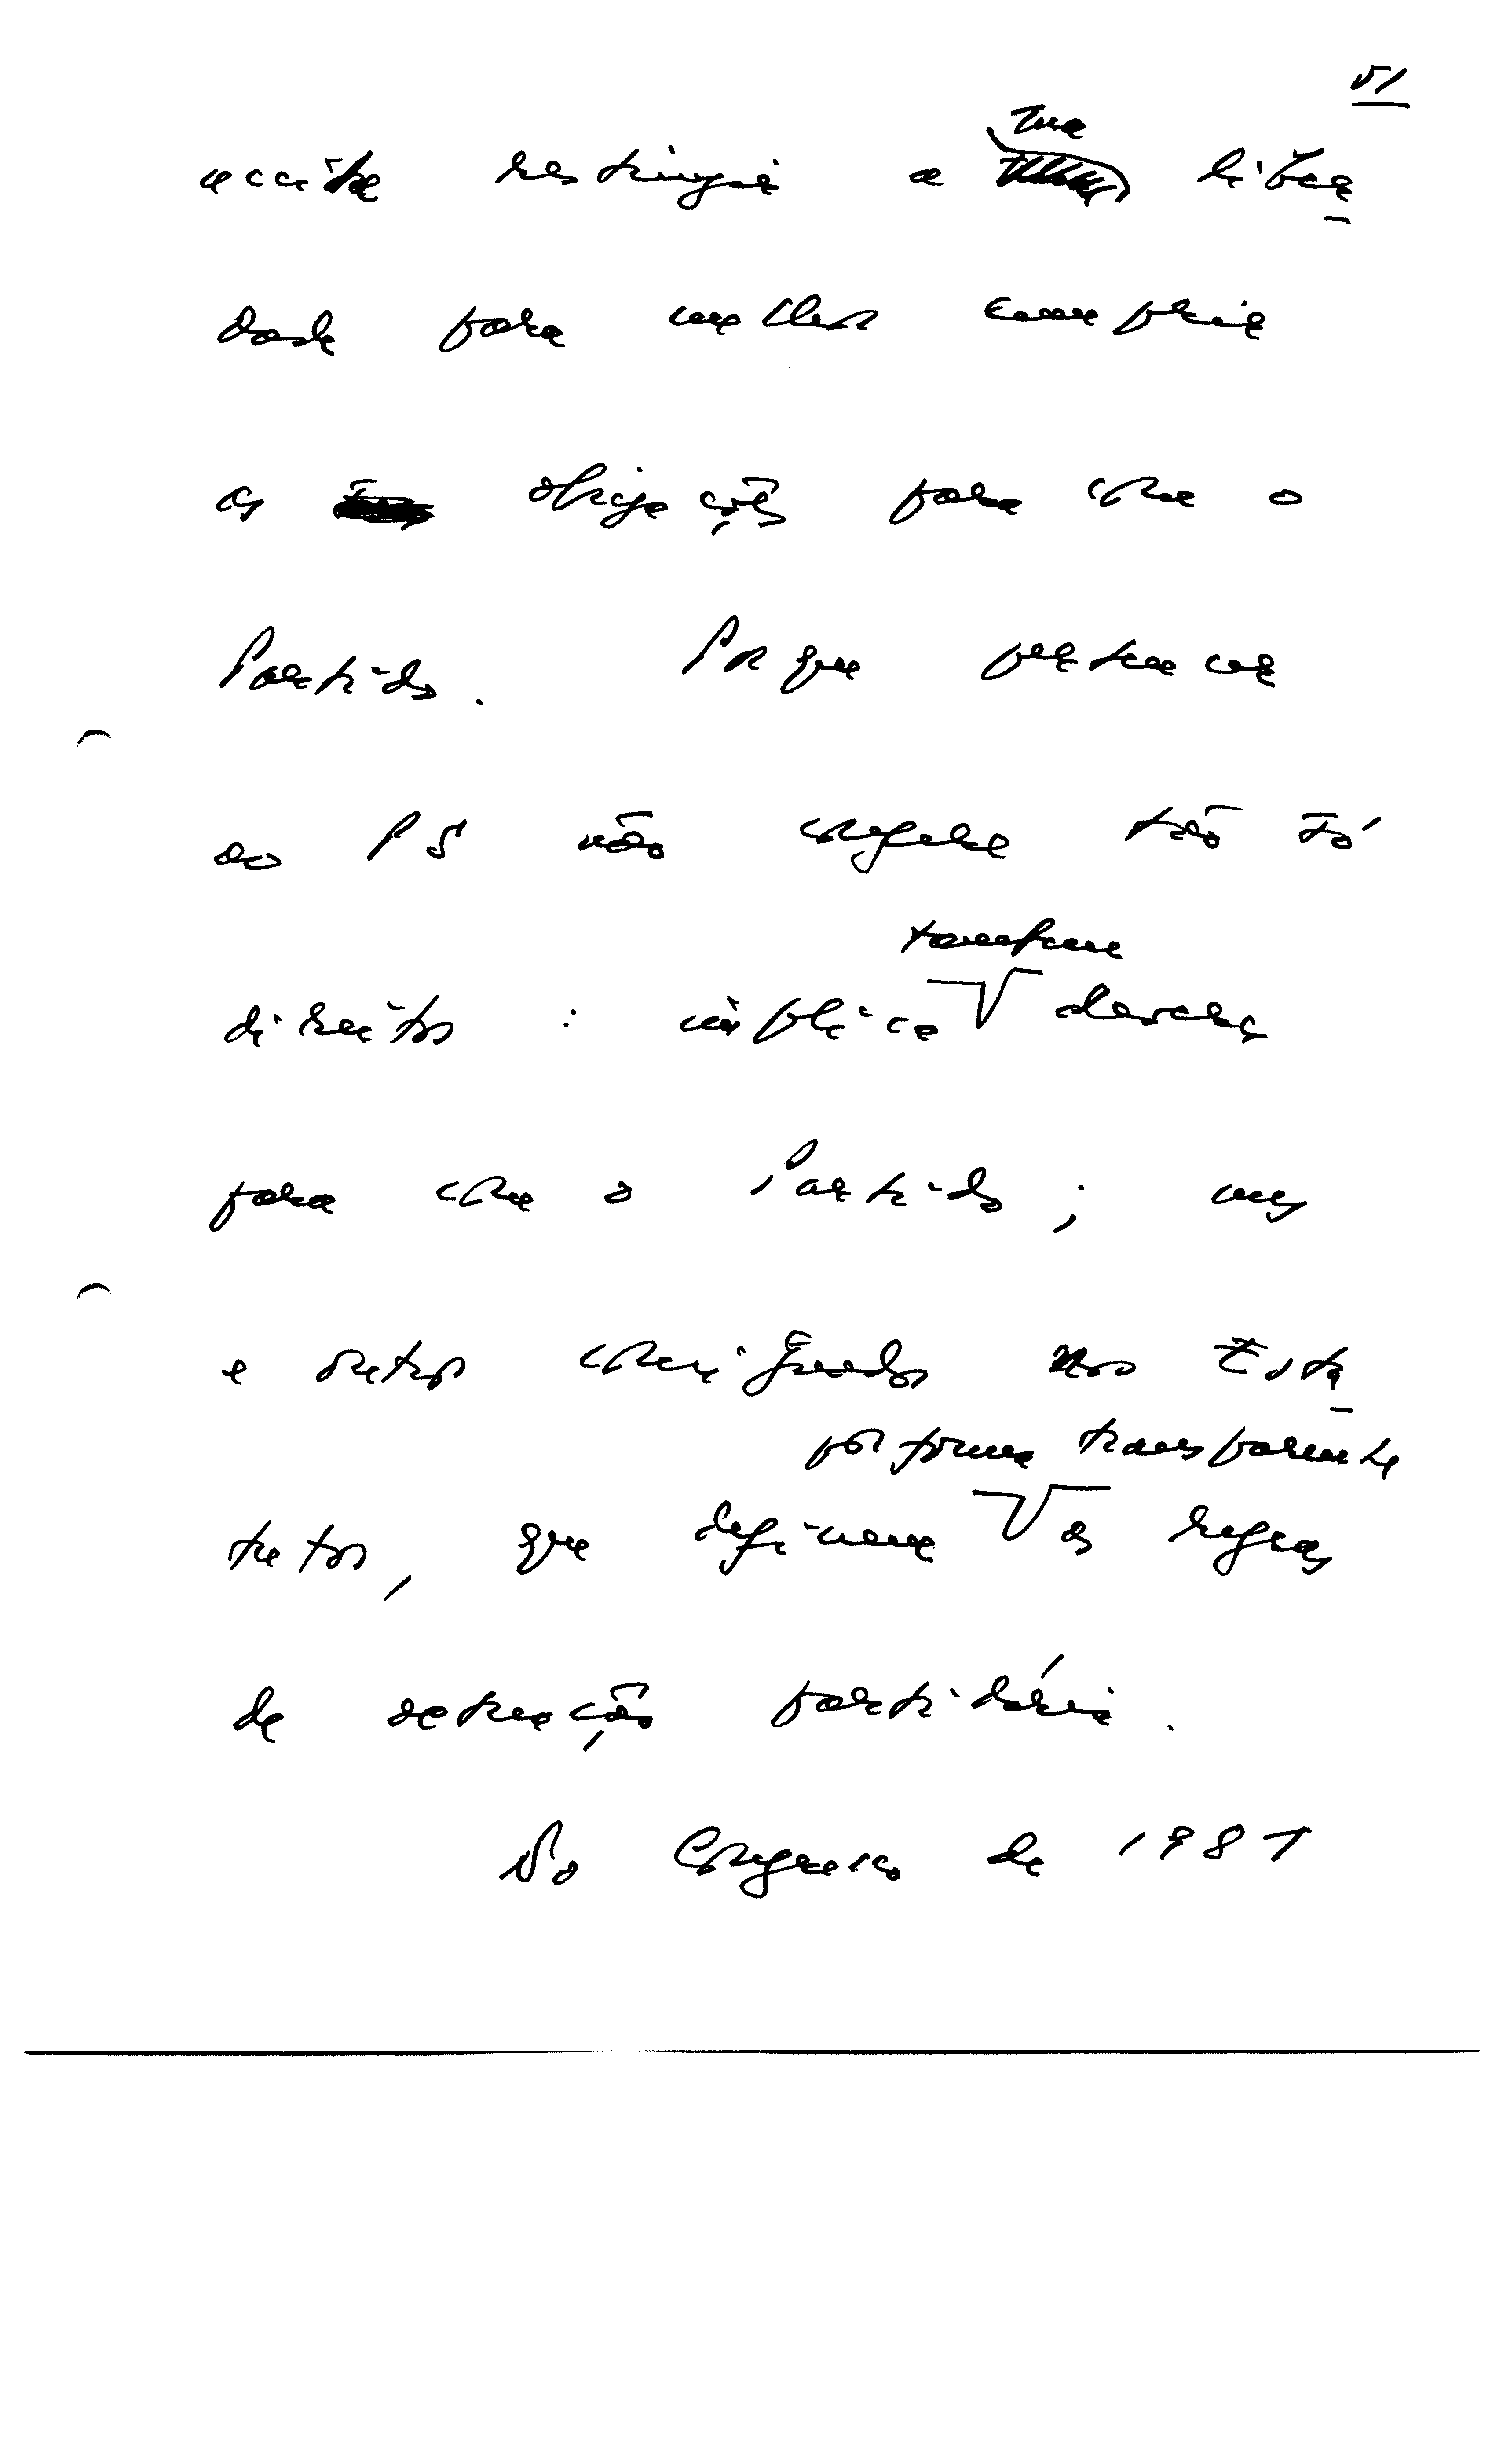 51
aceite restringir a sua liber
dade para melhor cumprir
as obrigações para com o
Partido. Porque pertencer
ao PS não confere tão só
direitos: implica também deveres
para com o Partido;
e outros consignados nos Esta
tutos, que definem por forma transparente as regras
de actuação partidária.
No Congresso de 1981